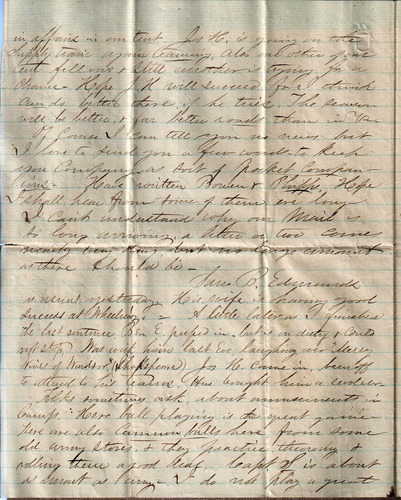 in our tent Jos H. is going on the
supply train again teaming, also one other of our
tent fellows & still another is trying for a
chance Hope J.H. will succeed, for I think
can do better there, if he tries. The season
will be better, & far better roads than in Va.
Of Course I can tell you no news, but
I love to send you a few words to keep
you Company as sort of pocket Compan
ions. Have written Bowen & Phillips. Hope
I shall hear from some of them ere long
I can't understand why our Mail is
so long arriving, a letter or two comes
nearly every day but no large amount
as there should be —
Saw B. Edmunds
as usual yesterday, his wife is having good
success at Wheeling. = A little later as I finished
the last sentence Ben E. peeped in, but is on duty & could
not stop. Was with him last Eve, laughing over Merry
Wives of Windsor (Shakspeare) Jos H. Came in, been off
to attend to his teams. Has bought him a revolver
sometimes about amusements in
Camp: Here ball playing is the great game
There are also Cannon balls here from some
old army stores, & they practice throwing &
rolling them a good deal, Capt is about
as smart as any — I do not play a great